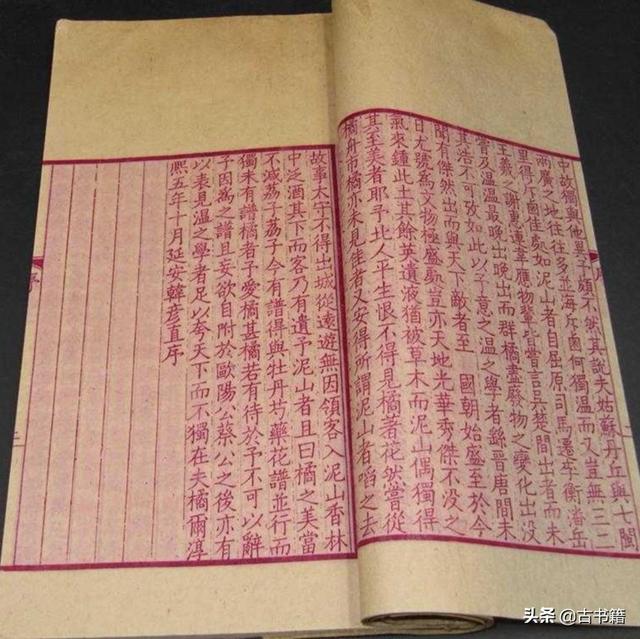 中故獨與他異予頗不然其說夫姑蘇丹丘與七閩
兩廣之地往往多並海斥鹵何獨溫而又豈無三二
里得斥鹵佳處如泥山者自屈原司馬遷李衡潘岳
王羲之謝惠連韋應物輩皆嘗言吳楚間出者而未
嘗及溫溫最晚出晚出而群橘盡廢物之變化出沒
其浩不可攷如此以予意之溫之學者繇晉唐間未
聞有傑然出而與天下敵者至 國朝始盛至於今
日尤號為文物極盛處豈亦天地光華秀傑不沒之
氣來鍾此土其餘英遺液猶被草木而泥山偶獨得
其至美者耶予北人平生恨不得見橘著花然嘗從
橘舟市橘亦未見佳者又安得所謂泥山者啗之去
故事太守不得出城從遠遊無因領客入泥山香林
中泛酒其下而客乃有遺予泥山者且曰橘之美當
不減荔子荔子今有譜得與牡丹芍藥花譜並行而
獨未有譜橘者子愛橘甚橘若有待於子不可以辭
予因為之譜且妄欲自附於歐陽公蔡公之後亦有
以表見溫之學者足以夸天下而不獨在夫橘爾淳
熙五年十月延安韓彥直序
序
头条 @古书籍